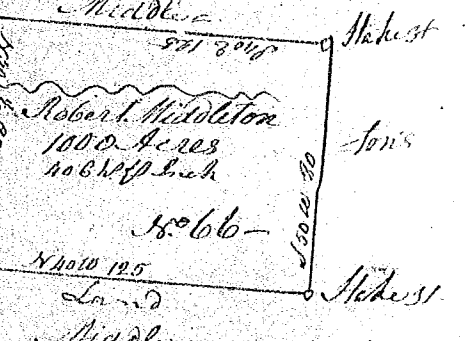 Middle
Stake 31
Robert Middleton
1000 Acres
40 Ch p Inch
tons
S 50 W 80
No 66 -
N 40 W 125
Stake 31
Land
Middle